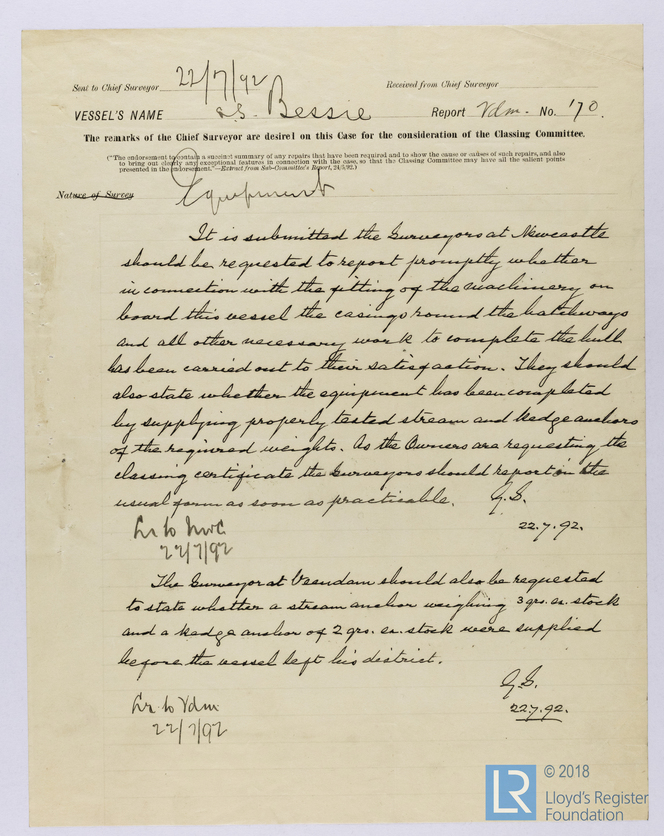 Sent to Chief Surveyor 22/7/92 Received from Chief Surveyor
VESSEL'S NAME S.S. Bessie Report Vdm. No. 170.
The remarks of the Chief Surveyor are desired on this Case for the consideration of the Classing Committee.
("The endorsement to contain a succinct summary of any repairs that have been required and to show the cause or causes of such repairs, and also
to bring out clearly any exceptional features in connection with the case, so that the Classing Committee may have all the salient points
presented in the endorsement."—Extract from Sub-Committee's Report, 24/5/92.)
Nature of Survey Equipment
It is submitted the Surveyors at Newcastle
should be requested to report promptly whether
in connection with the fitting of the machinery on
board this vessel the casings round the hatchways
and all other necessary work to complete the hull
has been carried out to their satisfaction. They should
also state whether the equipment has been completed
by supplying properly tested stream and kedge anchors
of the required weights. As the Owners are requesting the
classing certificate the Surveyors should report in the
usual form as soon as practicable. G.S.
22.7.92.
Lr to NwC
22/7/92
The Surveyor at Veendam should also be requested
to state whether a stream anchor weighing 3 qrs. ex. stock
and a kedge anchor of 2 qrs. ex. stock were supplied
before the vessel left his district.
G.S.
22.7.92.
Lr to Vdm
22/7/92
LR © 2018
Lloyd's Register
Foundation